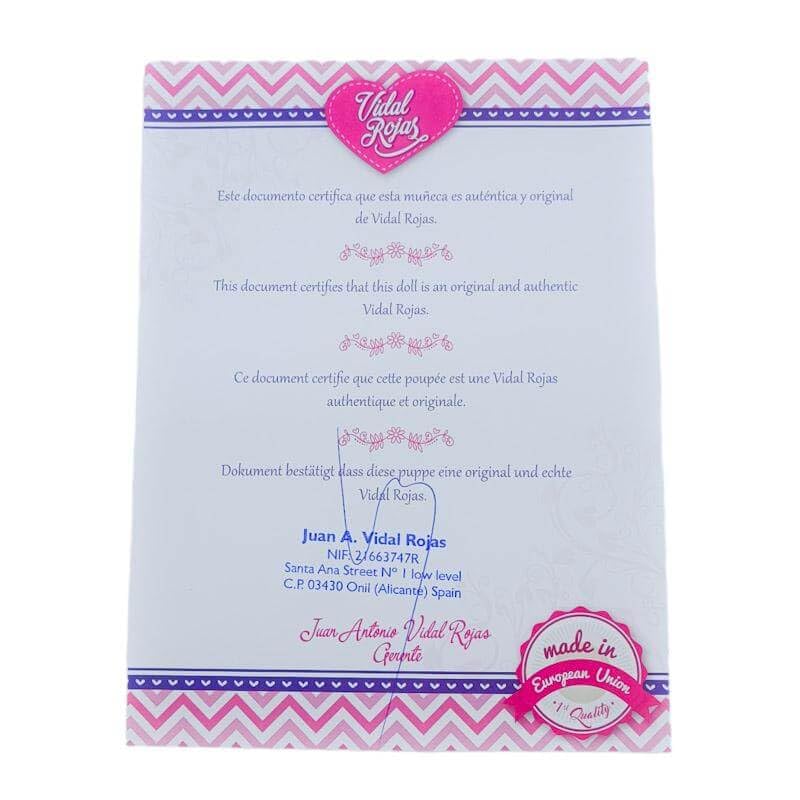 Vidal
Rojas
Este documento certifica que esta muñeca es auténtica y original
de Vidal Rojas.
This document certifies that this doll is an original and authentic
Vidal Rojas.
Ce document certifie que cette poupée est une Vidal Rojas
authentique et originale.
Dokument bestätigt dass diese puppe eine original und echte
Vidal Rojas.
Juan A. Vidal Rojas
NIF: 21663747R
Santa Ana Street Nº 1 low level
C.P. 03430 Onil (Alicante) Spain
Juan Antonio Vidal Rojas
Gerente
made in
European Union
1st Quality